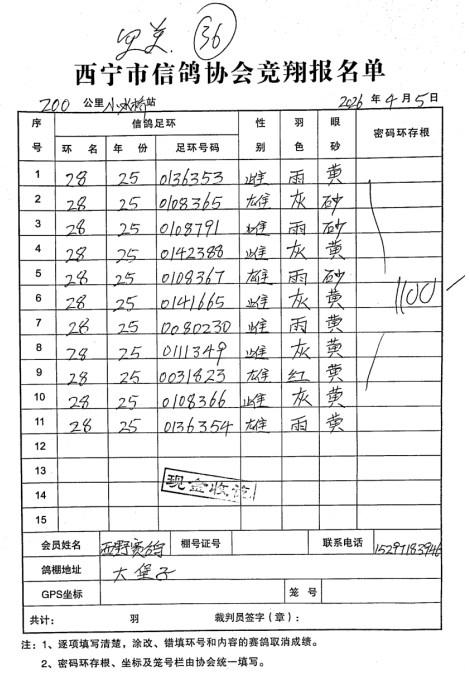 36
西宁市信鸽协会竞翔报名单
200 公里 小水桥 站 2026 年 4 月 5 日
序号 信鸽足环 性别 羽色 眼砂 密码环存根
环名 年份 足环号码
1 28 25 0136353 雌 雨 黄
2 28 25 0108365 雄 灰 砂
3 28 25 0108791 雨 砂
4 28 25 0142388 雌 灰 黄
5 28 25 0108367 雄 雨 砂
6 28 25 0141665 雌 灰 黄 1100
7 28 25 0080230 雌 雨 黄
8 28 25 0111349 雌 灰 黄
9 28 25 0031823 雄 红 黄
10 28 25 0108366 雌 灰 黄
11 28 25 0136354 雄 雨 黄
12
13
现金收讫
14
15
会员姓名 西野赛鸽 棚号证号 联系电话 15297183946
鸽棚地址 大堡子
GPS坐标 笼号
共计: 羽 裁判员签字(章):
注:1、逐项填写清楚,涂改、错填环号和内容的赛鸽取消成绩。
2、密码环存根、坐标及笼号栏由协会统一填写。